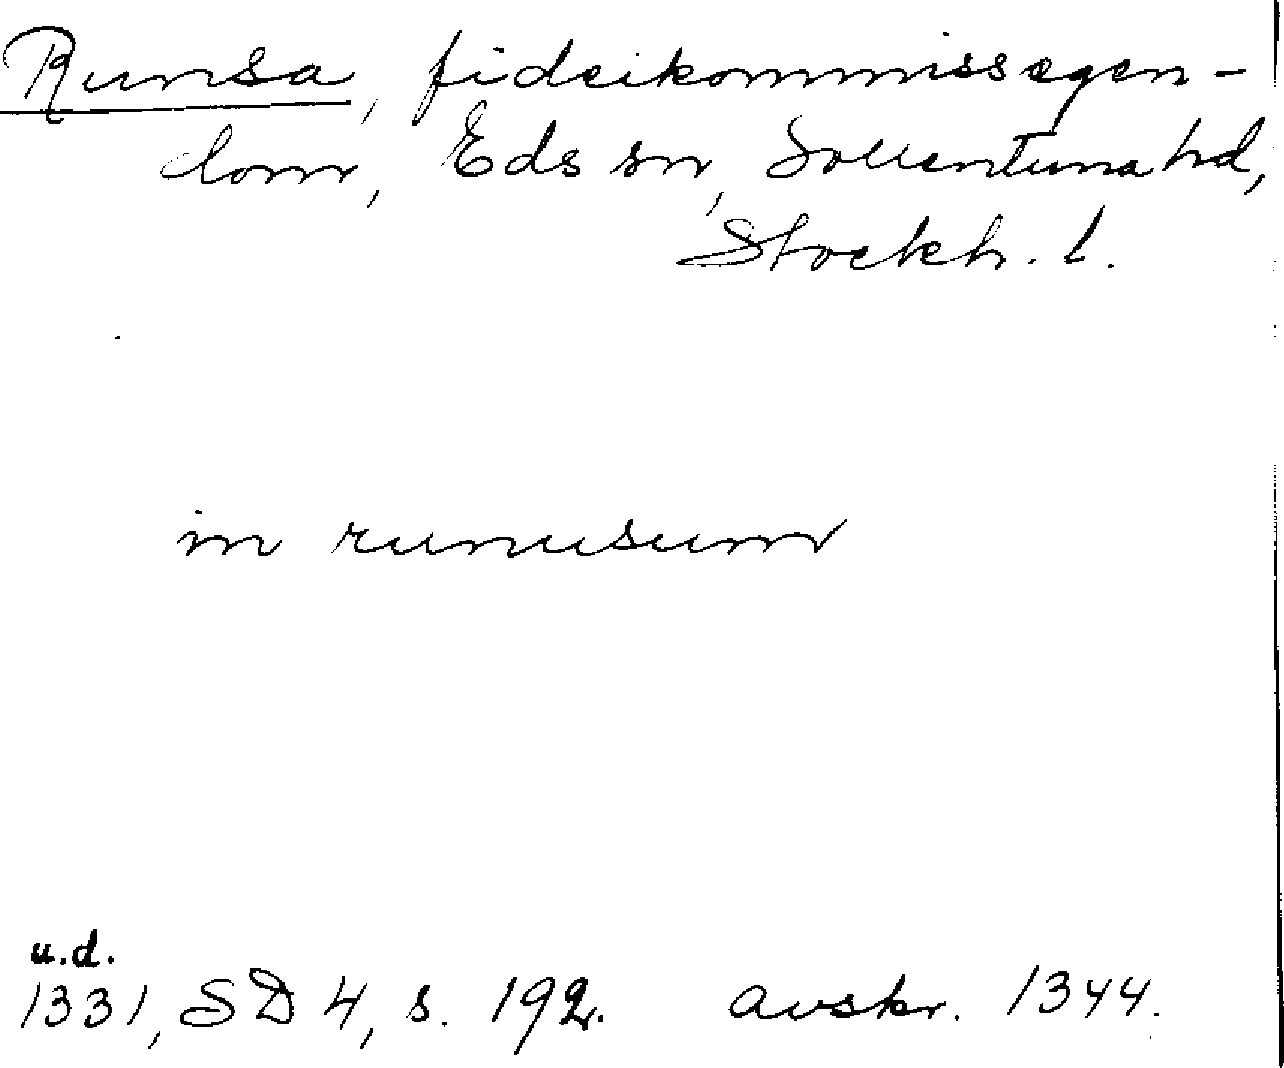 Runsa, fideikommissegen-
dom, Eds sn, Sollentuna hd,
Stockh. l.
in runusum
u.d.
1331, SD 4, s. 192. avskr. 1344.